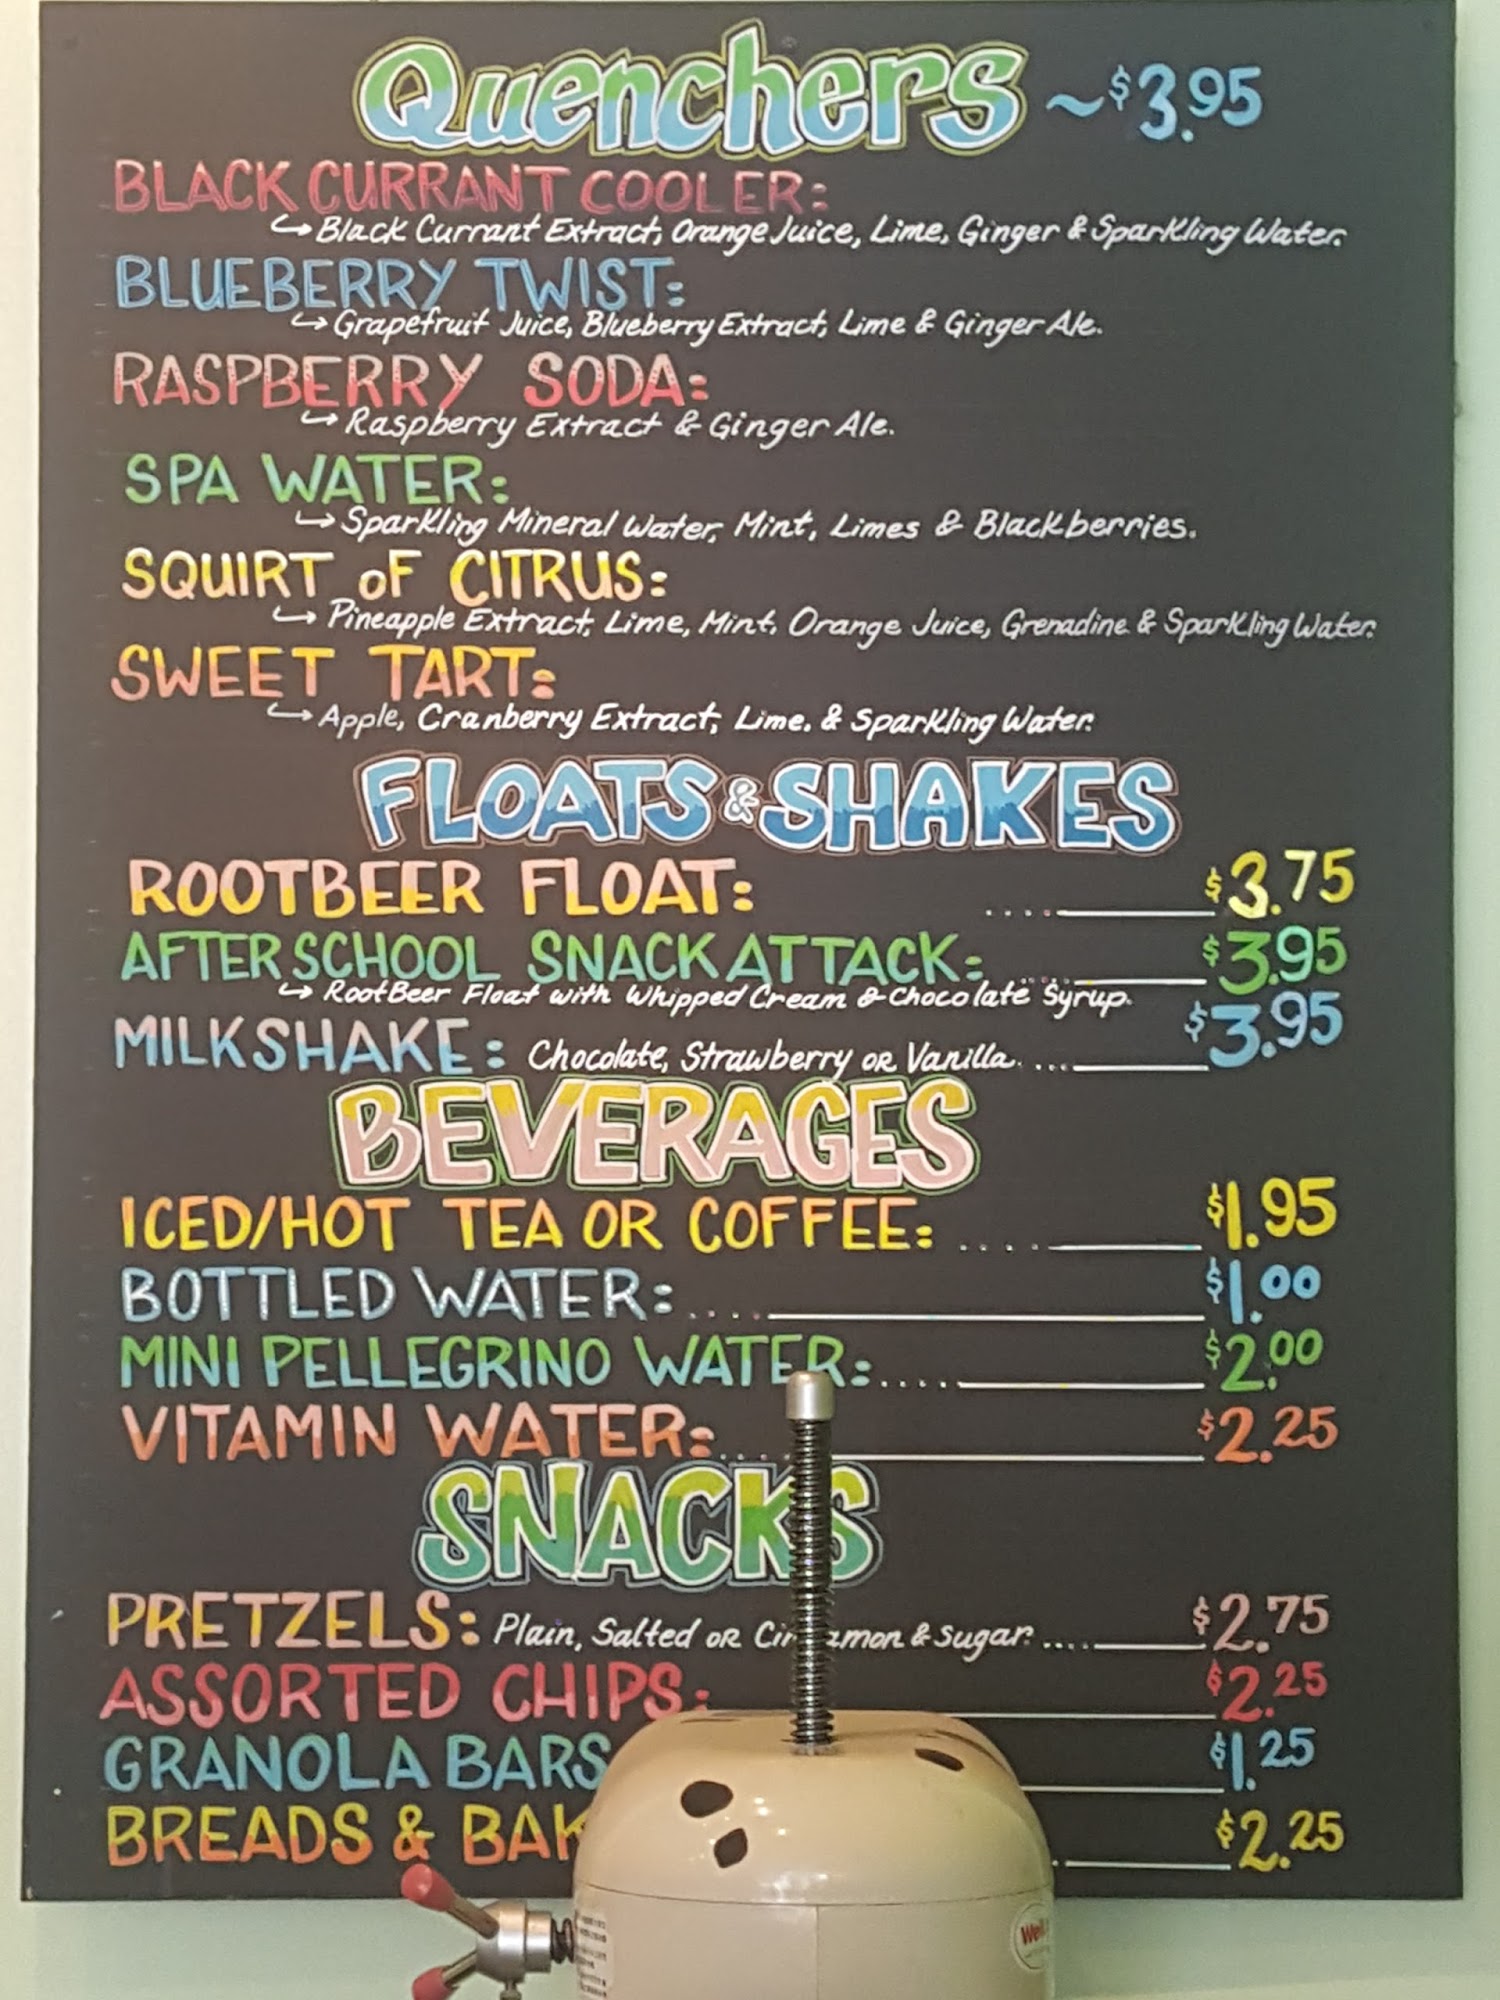 Quenchers ~ $3.95
BLACK CURRANT COOLER:
↪ Black Currant Extract, Orange Juice, Lime, Ginger & Sparkling Water.
BLUEBERRY TWIST:
↪ Grapefruit Juice, Blueberry Extract, Lime & Ginger Ale.
RASPBERRY SODA:
↪ Raspberry Extract & Ginger Ale.
SPA WATER:
↪ Sparkling Mineral Water, Mint, Limes & Blackberries.
SQUIRT OF CITRUS:
↪ Pineapple Extract, Lime, Mint, Orange Juice, Grenadine & Sparkling Water.
SWEET TART:
↪ Apple, Cranberry Extract, Lime. & Sparkling Water.
FLOATS & SHAKES
ROOTBEER FLOAT: .... $3.75
AFTER SCHOOL SNACK ATTACK: .... $3.95
↪ RootBeer Float with Whipped Cream & Chocolate Syrup.
MILKSHAKE: Chocolate, Strawberry OR Vanilla. ... $3.95
BEVERAGES
ICED/HOT TEA OR COFFEE: .... $1.95
BOTTLED WATER: .... $1.00
MINI PELLEGRINO WATER: .... $2.00
VITAMIN WATER: .... $2.25
SNACKS
PRETZELS: Plain, Salted OR Cinnamon & Sugar. .... $2.75
ASSORTED CHIPS: $2.25
GRANOLA BARS $1.25
BREADS & $2.25